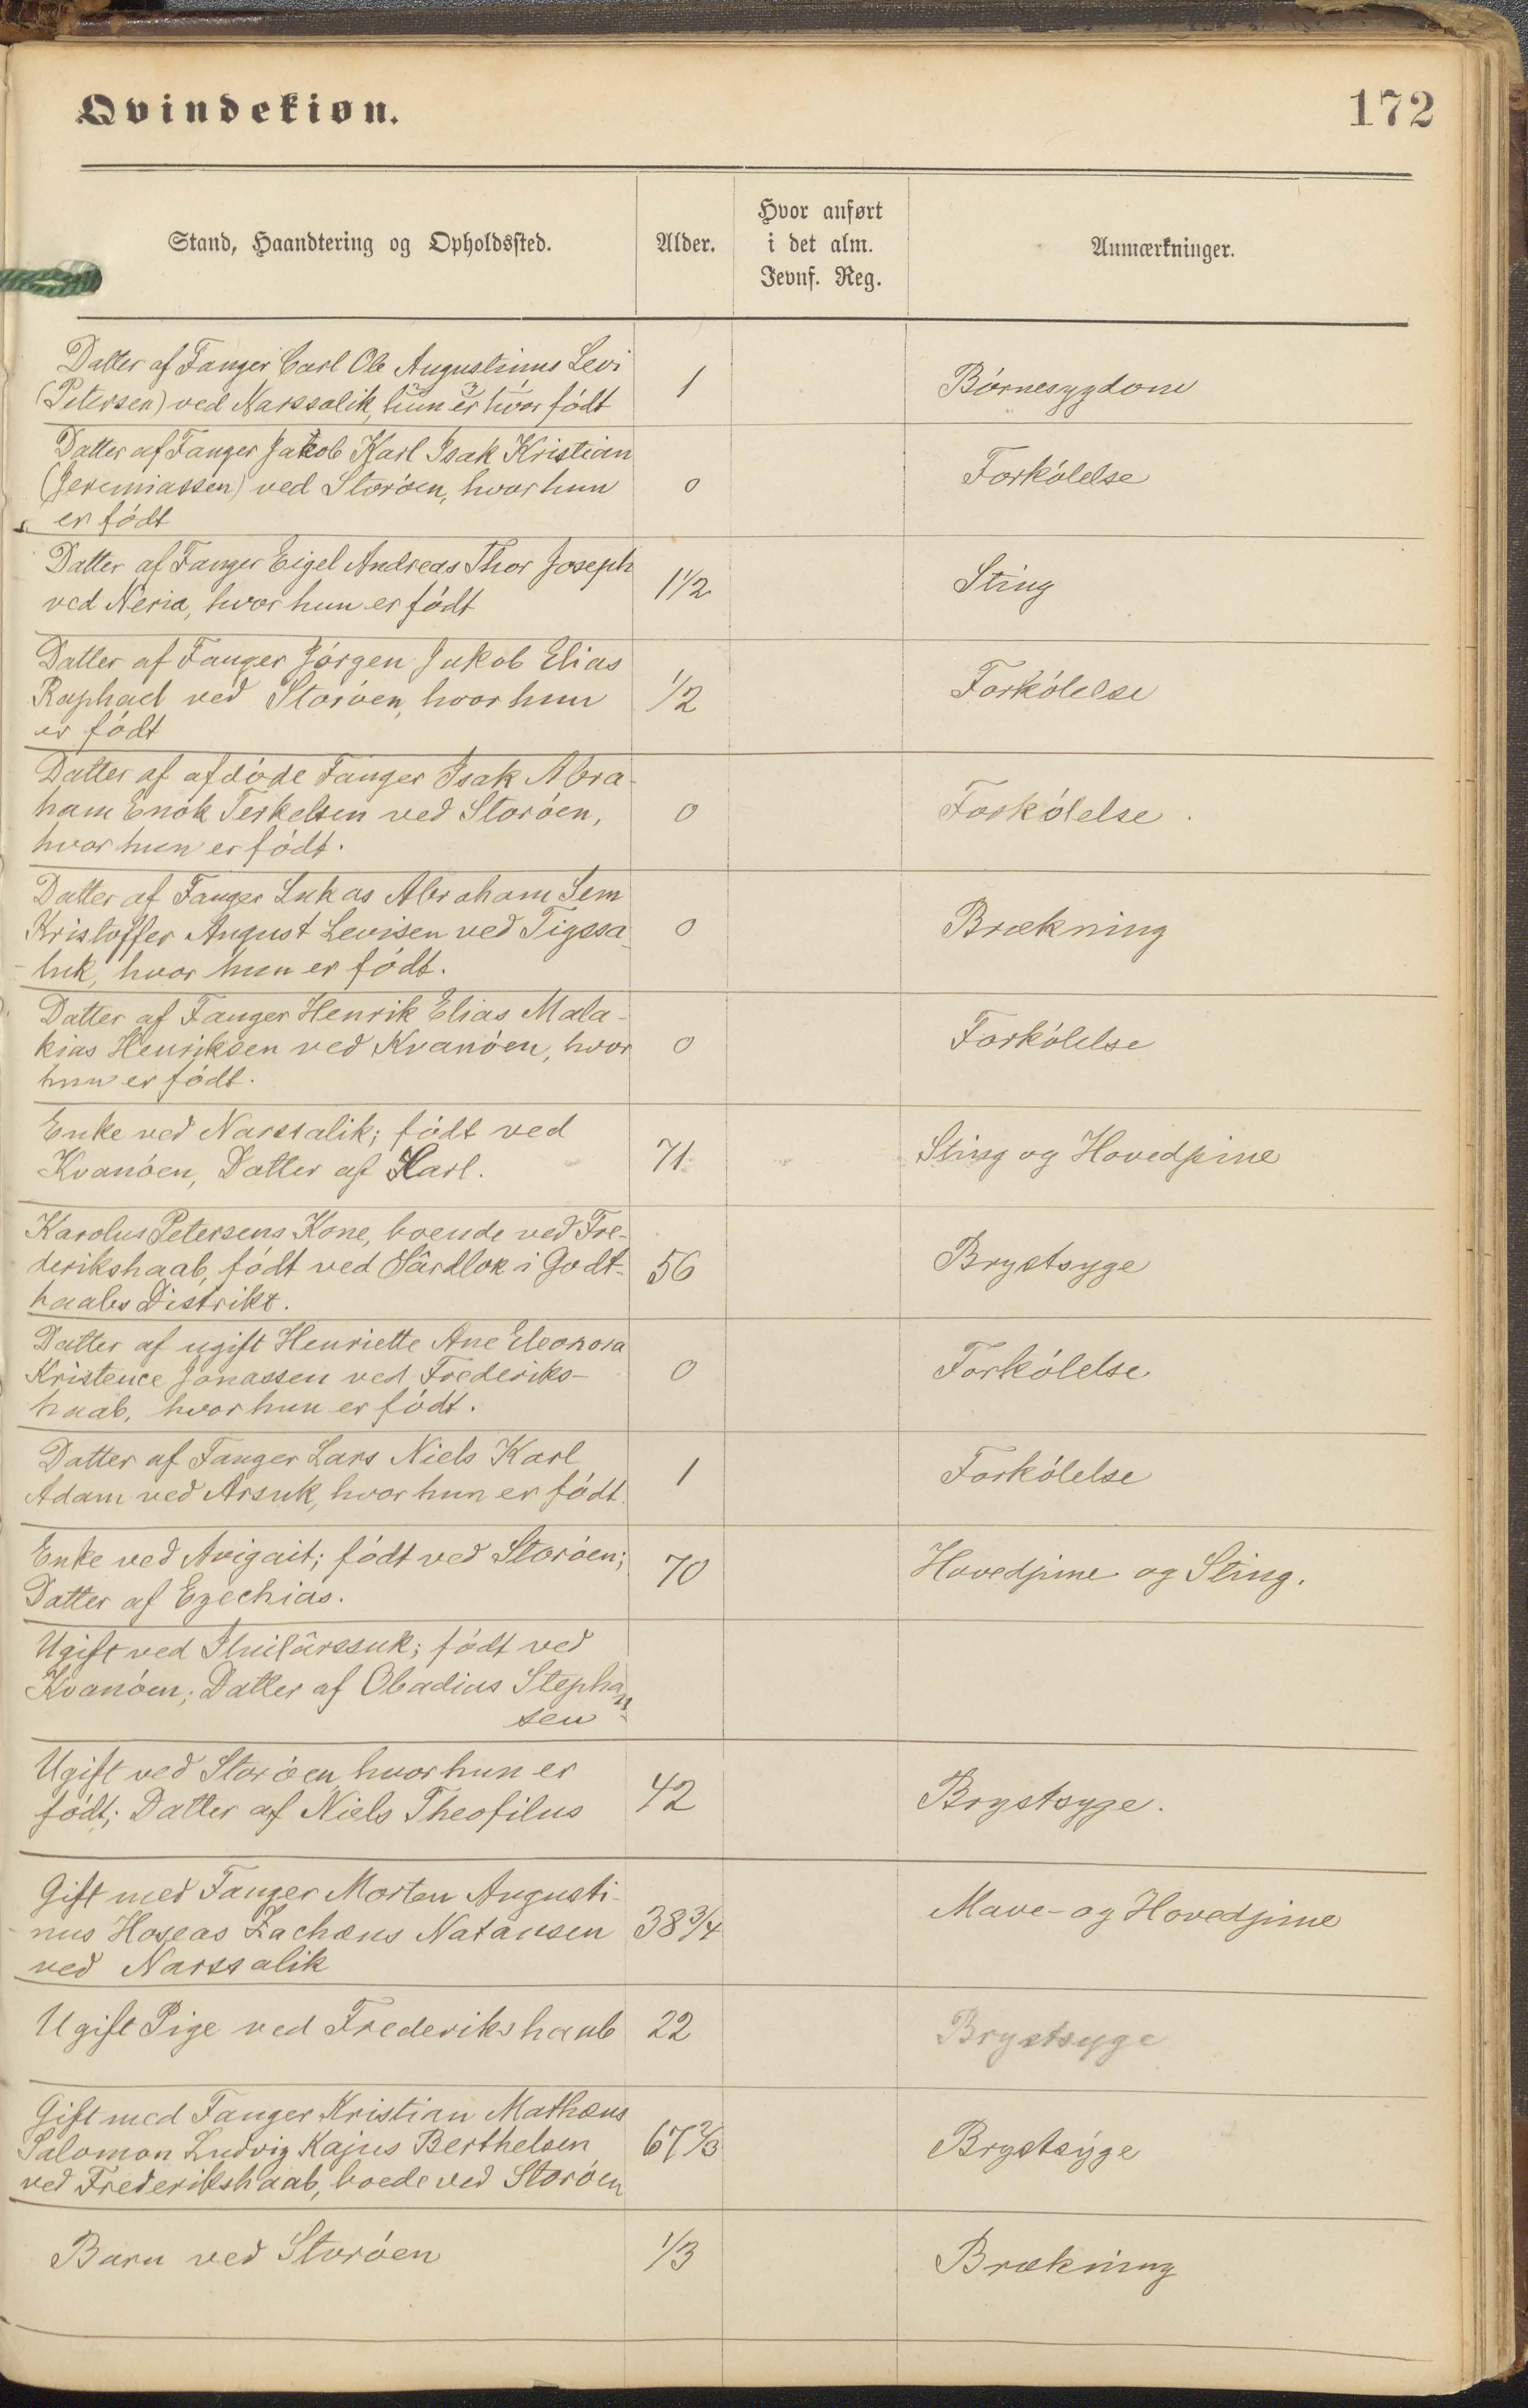 Qvindekiøn.
172
Stand, Haandtering og Opholdssted.
Alder.
Hvor anført
i det alm.
Jevnf. Reg.
Anmærkninger.
Datter af Fanger Carl Ole Augustinus Levi
(Petersen) ved Narssalik, hun er hvor født
1
Börnesygdom
Datter af Fanger Jakob Karl Isak Kristian
(Jeremiassen) ved Storöen, hvor hun
er födt
0
Forkölelse
Datter af Fanger Eigel Andreas Thor Joseph
ved Neria, hvor hun er födt
1 1/2
Sting
Datter af Fanger Jörgen Jakob Elias
Raphael ved Storöen, hvor hun
er födt
1/2
Forkölelse
Datter af afdöde Fanger Isak Abra-
ham Enok Terkelsen ved Storöen,
hvor hun er födt.
0
Forkölelse.
Datter af Fanger Lukas Abraham Sem
Kristoffer August Levisen ved Tigssa-
luk, hvor hun er födt.
0
Brækning
Datter af Fanger Henrik Elias Mala-
kias Henriksen ved Kvanöen, hvor
hun er födt.
0
Forkölelse
Enke ved Narssalik; födt ved
Kvanöen, Datter af Karl.
71
Sting og Hovedpine
Karolus Petersens Kone, boende ved Fre-
derikshaab, födt ved Sârdlok i Godt-
haabs Distrikt.
56
Brystsyge
Datter af ugift Henriette Ane Eleonora
Kristence Jonassen ved Frederiks-
haab, hvor hun er födt.
0
Forkölelse
Datter af Fanger Lars Niels Karl
Adam ved Arsuk, hvor hun er födt.
1
Forkölelse
Enke ved Avigait; födt ved Storöen;
Datter af Ezechias.
70
Hovedpine og Sting.
Ugift ved Thuilârssuk; födt ved
Kvanöen; Datter af Obadias Stephan-
sen
Ugift ved Storöen, hvor hun er
födt; Datter af Niels Theofilus
42
Brystsyge.
Gift med Fanger Morten Augusti-
nus Hoseas Zachæus Natansen
ved Narssalik
38 3/4
Mave- og Hovedpine
Ugift Pige ved Frederikshaab
22
Brystsyge
Gift med Fanger Kristian Mathæus
Salomon Ludvig Kajus Berthelsen
ved Frederikshaab, boede ved Storöen
67 2/3
Brystsyge
Barn ved Storöen
1/3
Brækning